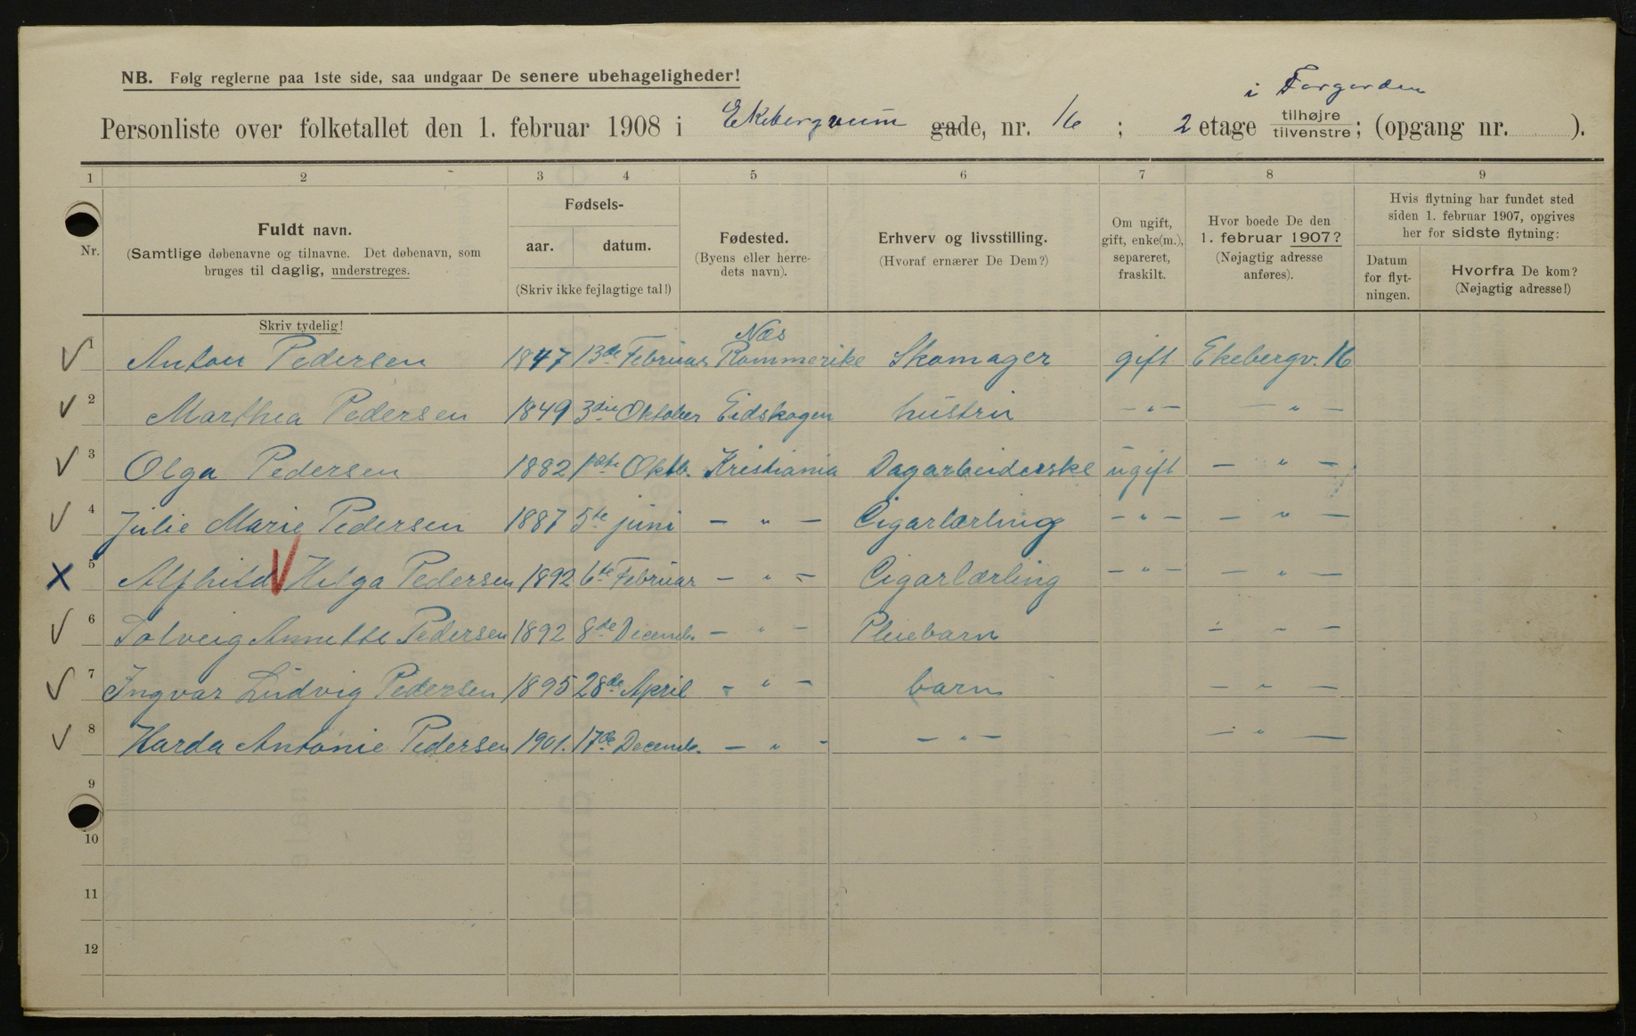 NB. Følg reglerne paa 1ste side, saa undgaar De senere ubehageligheder!
Personliste over folketallet den 1. februar 1908 i Ekebergveien gade, nr. 16 ; 2 etage tilhøjre tilvenstre; (opgang nr. ).
i Forgården
1 2 3 4 5 6 7 8 9
Nr.
Fuldt navn.
(Samtlige døbenavne og tilnavne. Det døbenavn, som
bruges til daglig, understreges.
Skriv tydelig!
Fødsels-
aar. datum.
(Skriv ikke fejlagtige tal!)
Fødested.
(Byens eller herre-
dets navn).
Erhverv og livsstilling.
(Hvoraf ernærer De Dem?)
Om ugift,
gift, enke(m.),
separeret,
fraskilt.
Hvor boede De den
1. februar 1907?
(Nøjagtig adresse
anføres).
Hvis flytning har fundet sted
siden 1. februar 1907, opgives
her for sidste flytning:
Datum
for flyt-
ningen.
Hvorfra De kom?
(Nøjagtig adresse!)
1 Anton Pedersen 1847 13de Februar Næs Rommerike Skomager gift Ekebergv. 16
2 Marthea Pedersen 1849 3die Oktober Eidskogen hustru – " – – " –
3 Olga Pedersen 1882 1ste Oktb. Kristiania Dagarbeiderske ugift – " –
4 Julie Marie Pedersen 1887 5te juni – " – Cigarlærling – " – – " –
5 Alfhild Helga Pedersen 1892 6te Februar – " – Cigarlærling – " – – " –
6 Solveig Annette Pedersen 1892 8de Decemb. – " – Pleiebarn – " –
7 Ingvar Ludvig Pedersen 1895 28de April – " – barn – " –
8 Harda Antonie Pedersen 1901. 17de Decemb. – " – – " – – " –
9
10
11
12